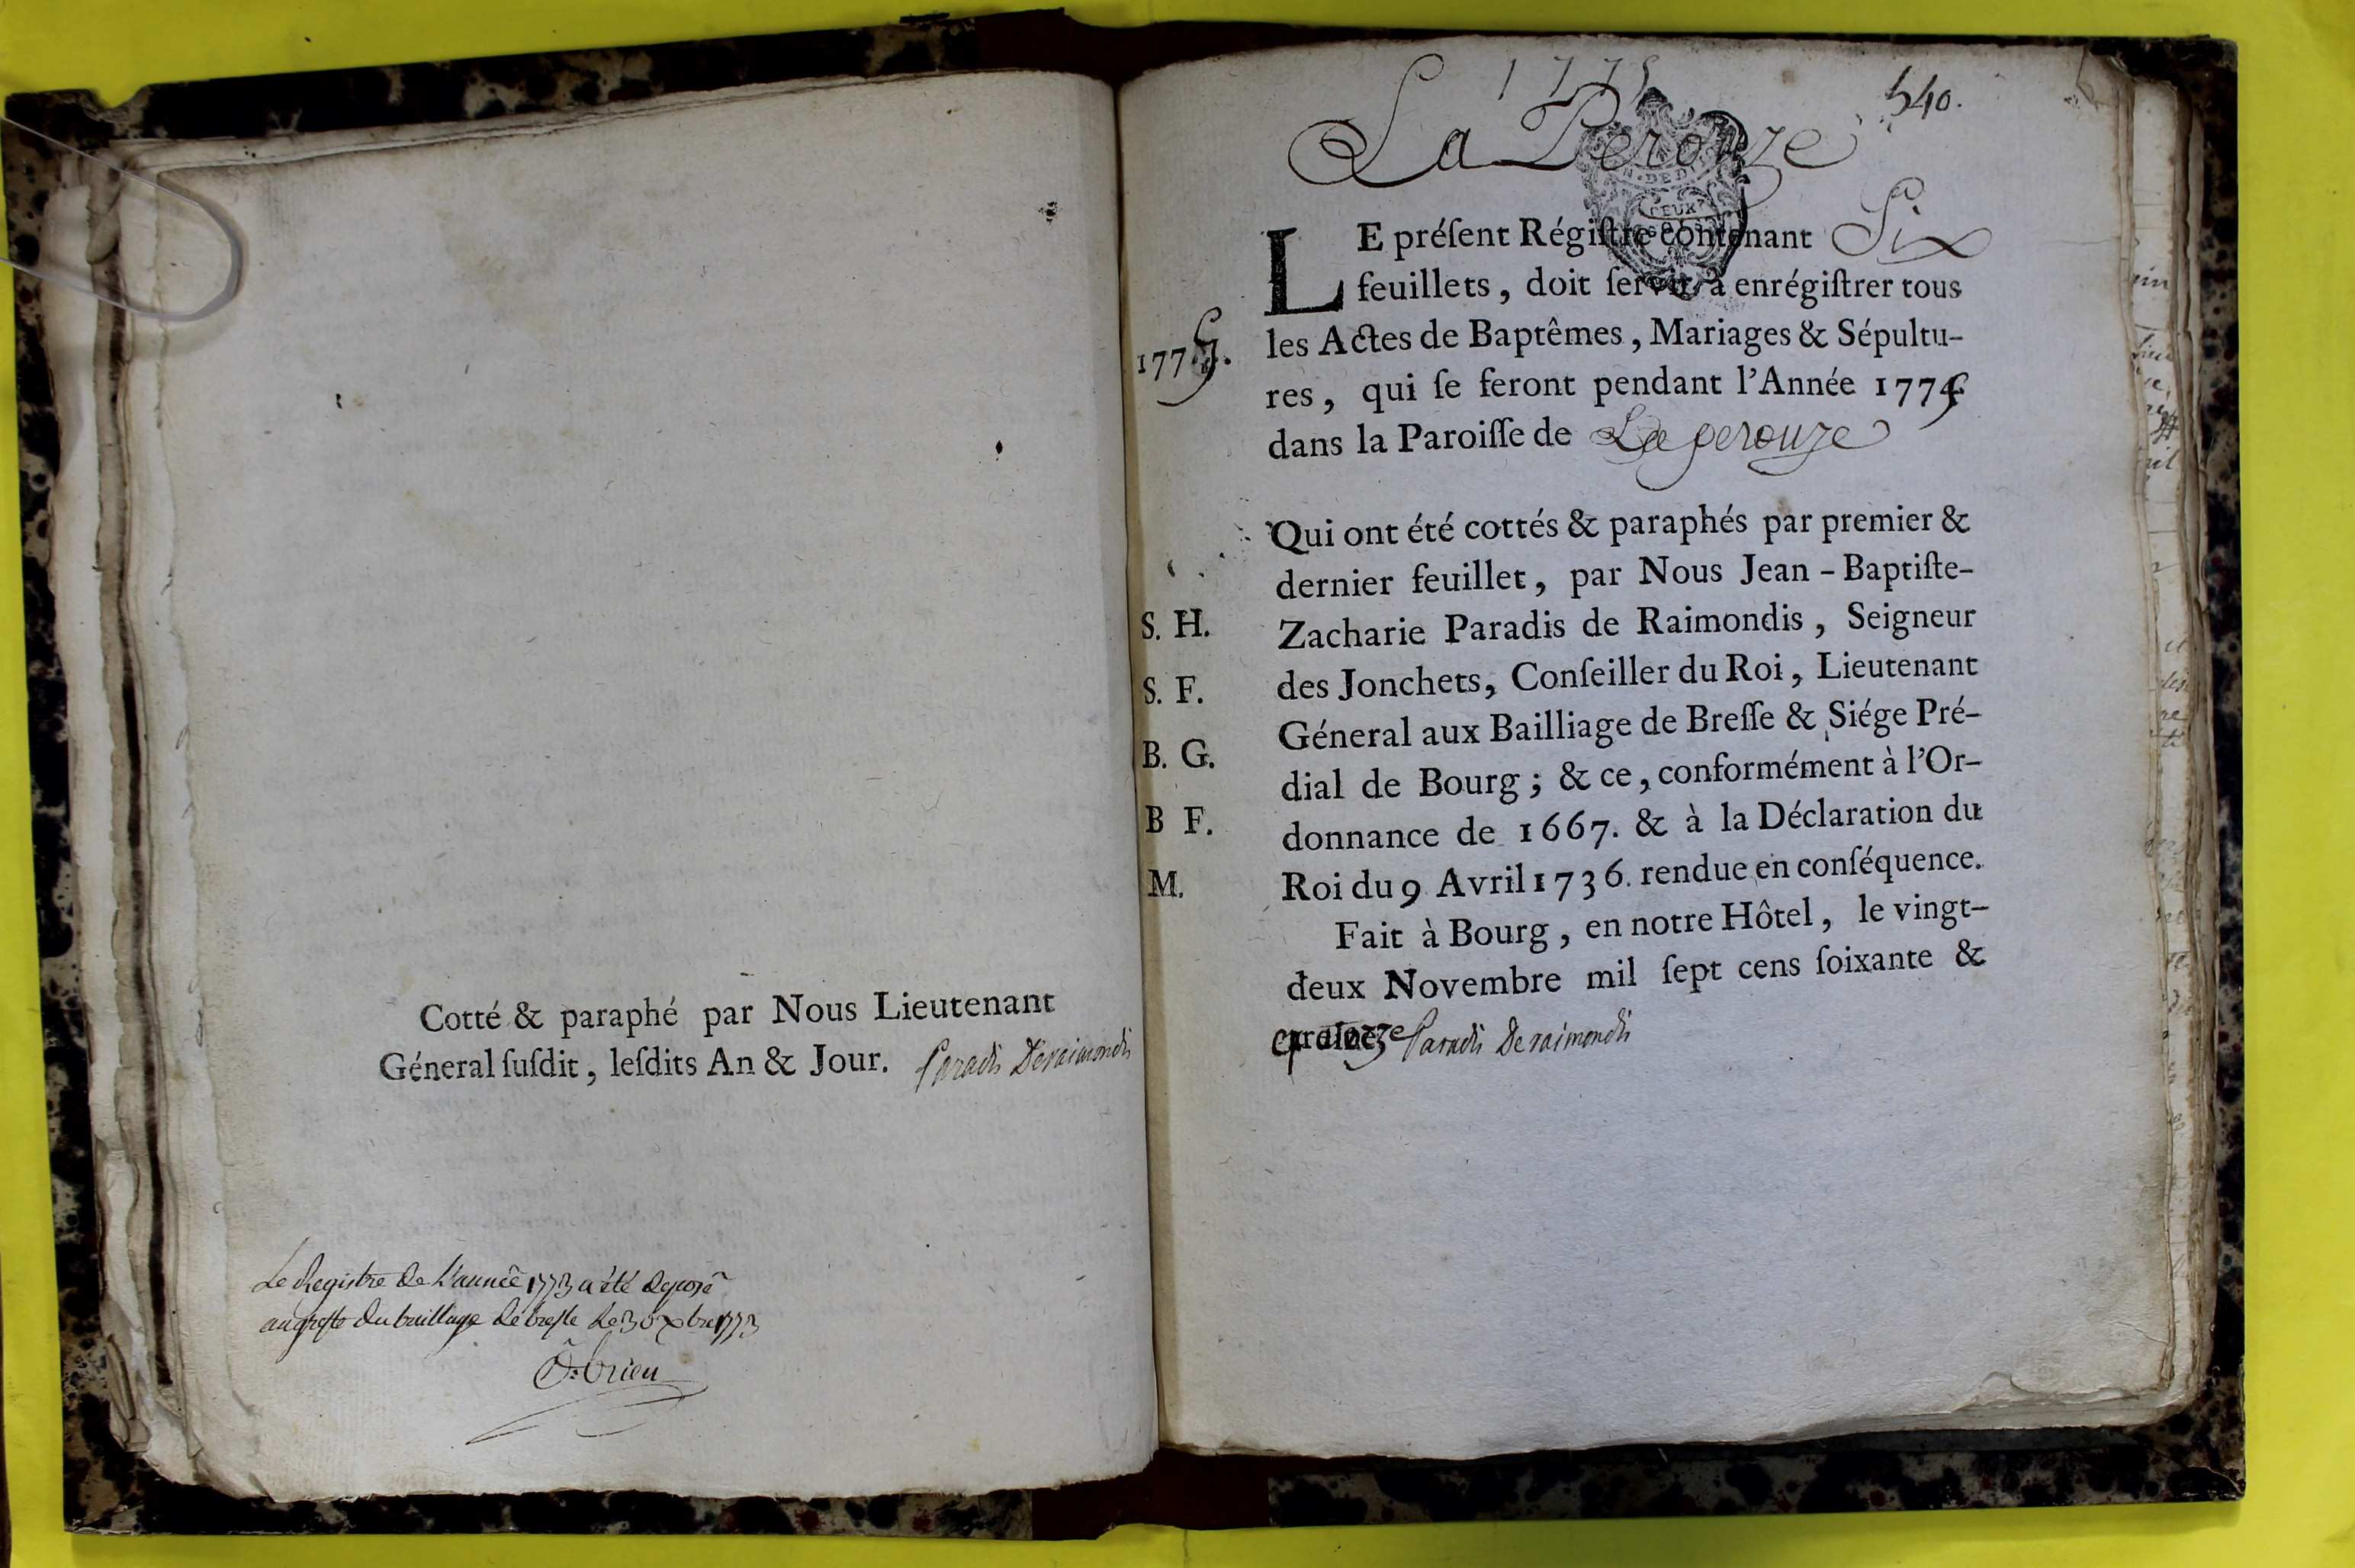 Cotté & paraphé par Nous Lieutenant
Géneral ſuſdit, leſdits An & Jour. Paradis Deraimondis
Le Registre de L'année 1773 a été deposé
au greffe du bailliage de bresse le 30 xbre 1773
O: brien
1775
540.
La Perouze
LE préſent Régiſtre contenant Six
feuillets, doit ſervir à enrégiſtrer tous
1775.
les Actes de Baptêmes, Mariages & Sépultu-
res, qui ſe feront pendant l'Année 1775
dans la Paroiſſe de La perouze
Qui ont été cottés & paraphés par premier &
dernier feuillet, par Nous Jean-Baptiſte-
S. H.
Zacharie Paradis de Raimondis, Seigneur
S. F.
des Jonchets, Conſeiller du Roi, Lieutenant
B. G.
Géneral aux Bailliage de Breſſe & Siége Pré-
dial de Bourg; & ce, conformément à l'Or-
B F.
donnance de 1667. & à la Déclaration du
M.
Roi du 9 Avril 1736. rendue en conſéquence.
Fait à Bourg, en notre Hôtel, le vingt-
deux Novembre mil ſept cens ſoixante &
Paradis Deraimondis